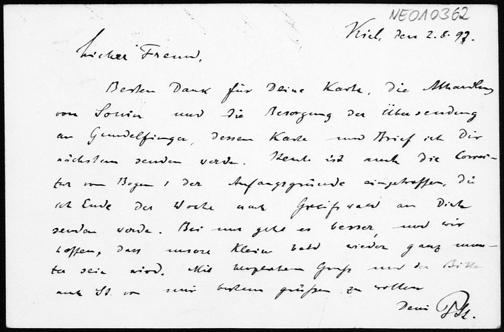 NEO10362
Kiel, den 2.8.97.
Lieber Freund,
Besten Dank für Deine Karte, die Abhandlung
von Sonin und die Besorgung der Übersendung
an Gundelfinger, dessen Karte und Brief ich Dir
nächstens senden werde. Heute ist auch die Correc-
tur vom Bogen 1 der Anfangsgründe eingetroffen, die
ich Ende der Woche nach Greifswald an Dich
senden werde. Bei uns geht es besser, und wir
hoffen, dass unsere Kleine bald wieder ganz mun-
ter sein wird. Mit herzlichem Gruß und der Bitte
auch St. von mir bestens grüßen zu wollen
Dein